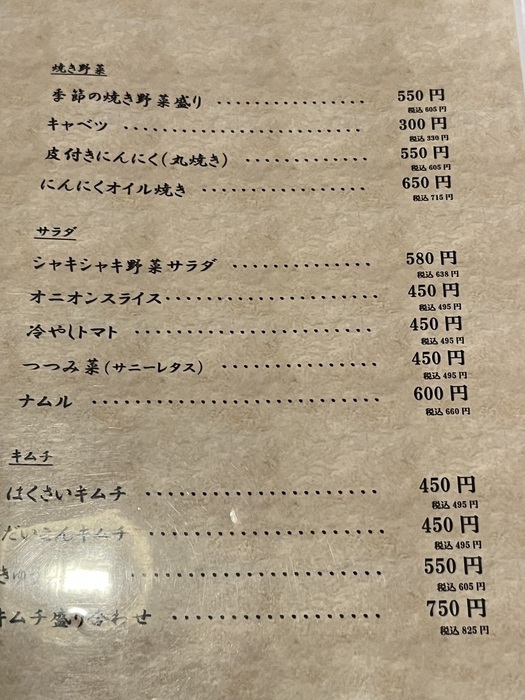 焼き野菜
季節の焼き野菜盛り 550円
税込 605円
キャベツ 300円
税込 330円
皮付きにんにく(丸焼き) 550円
税込 605円
にんにくオイル焼き 650円
税込 715円
サラダ
シャキシャキ野菜サラダ 580円
税込 638円
オニオンスライス 450円
税込 495円
冷やしトマト 450円
税込 495円
つつみ菜(サニーレタス) 450円
税込 495円
ナムル 600円
税込 660円
キムチ
はくさいキムチ 450円
税込 495円
だいこんキムチ 450円
税込 495円
550円
税込 605円
キムチ盛り合わせ 750円
税込 825円